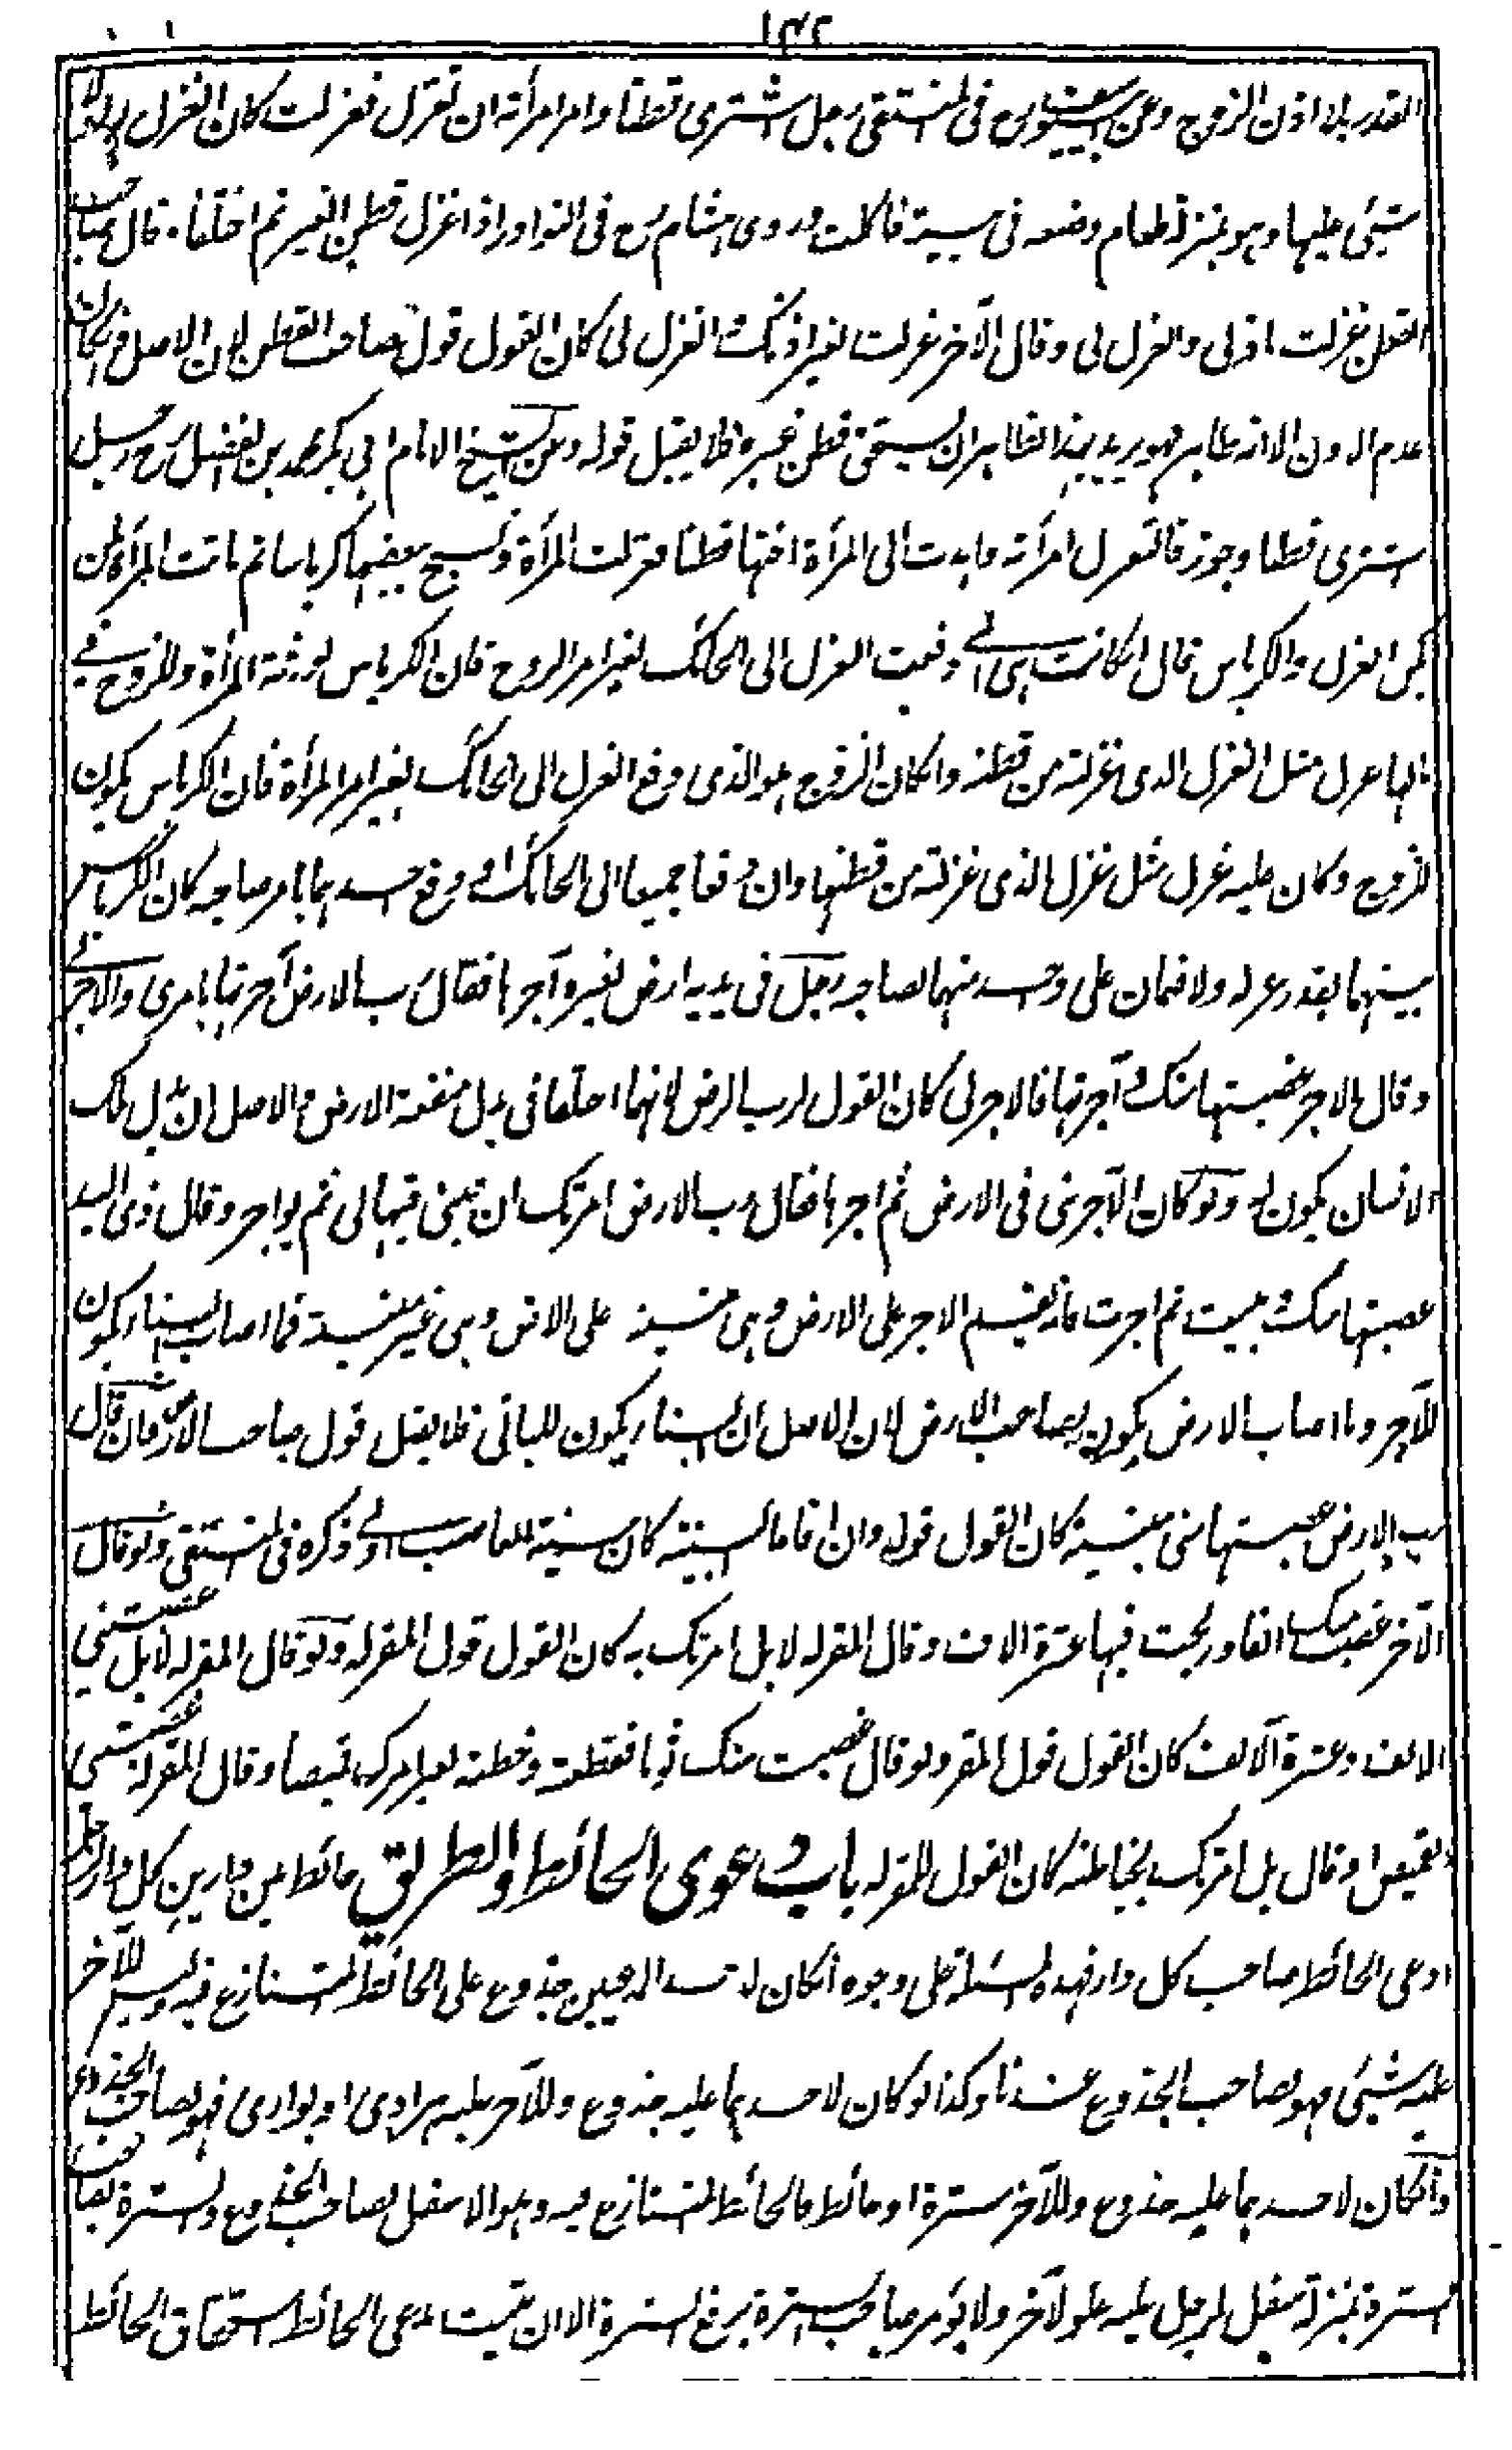 ١٤٢
القدر بلا اذن الزوج وعن ابي يوسف رح في المنتقى رجل اشترى قطنا وامر امرأته ان تغزل فغزلت كان الغزل له ولا
شيئ عليها وهو بمنزلة طعام وضعه في بيته فاكلت وروى هشام رح في النوادر اذا غزل قطن الغير ثم اختلفا فقال صاحب
القطن غزلت باذني والغزل لي وقال الآخر غزلت بغير اذنك والغزل لي كان القول قول صاحب القطن لان الاصل وان كان
عدم الاذن الا انه ظاهر فهو يريد بهذا الظاهر ان يستحق قطن غيره فلا يقبل قوله وعن الشيخ الامام ابي بكر محمد بن الفضل رح رجل
اشترى قطنا وجوزقا لتغزل امرأته فاهدت الى المرأة اختها قطنا فغزلت المرأة ونسج بعضها كرباسا ثم ماتت المرأة لمن
يكون الغزل والكرباس قال ان كانت هي التي دفعت الغزل الى الحائك بغير امر الزوج فان الكرباس لورثة المرأة وللزوج في
مالها غزل مثل الغزل الذي غزلته من قطنه وان كان الزوج هو الذي دفع الغزل الى الحائك بغير امر المرأة فان الكرباس يكون
للزوج وكان عليه غزل مثل غزل الذي غزلته من قطنها وان دفعا جميعا الى الحائك او دفع احدهما بامر صاحبه كان الكرباس
بينهما بقدر غزله ولا ضمان على واحد منهما لصاحبه رجل في يديه ارض لغيره آجرها فقال رب الارض آجرتها بامري والاجر لي
وقال الآجر غصبتها منك وآجرتها فالاجر لي كان القول لرب الارض لانهما اختلفا في بدل منفعة الارض والاصل ان بدل ملك
الانسان يكون له ولو كان الآجر بنى في الارض ثم اجرها فقال رب الارض امرتك ان تبني فيها لي ثم يواجر وقال ذي اليد
غصبتها منك وبنيت ثم اجرت فانه يقسم الاجر على الارض وهي مبنية على الارض وهي غير مبنية فما اصاب البناء يكون
للآجر وما اصاب الارض يكون لصاحب الارض لان الاصل ان البناء يكون للباني فلا يقبل قول صاحب الارض فان قال
رب الارض غصبتها مني مبنية كان القول قوله وان اقاما البينة كان بينة الغاصب اولى وذكره في المنتقى ولو قال
الآخر غصبت منك الفا وربحت فيها عشرة الاف وقال المقر له لا بل امرتك به كان القول قول المقر له ولو قال المقر له لا بل غصبتني
الالف وعشرة آلاف كان القول قول المقر ولو قال غصبت منك ثوبا فقطعته وخطته بغير امرك قميصا وقال المقر له غصبتني
القميص او قال بل امرتك بخياطته كان القول للمقر له باب دعوى الحائط والطريق حائط بين دارين كل دار لرجل
ادعى الحائط صاحب كل دار فهذه المسئلة على وجوه ان كان لاحد المدعيين جذوع على الحائط المتنازع فيه وليس للآخر
عليه شيئ فهو لصاحب الجذوع عندنا وكذا لو كان لاحدهما عليه جذوع وللآخر عليه هرادى او بوارى فهو لصاحب الجذوع
وان كان لاحدهما عليه جذوع وللآخر سترة او حائط فالحائط المتنازع فيه وهو الاسفل لصاحب الجذوع والسترة لصاحب
السترة بمنزلة سفل لرجل عليه علو لآخر ولا يؤمر صاحب السترة برفع السترة الا ان يثبت مدعي الحائط استحقاق الحائط